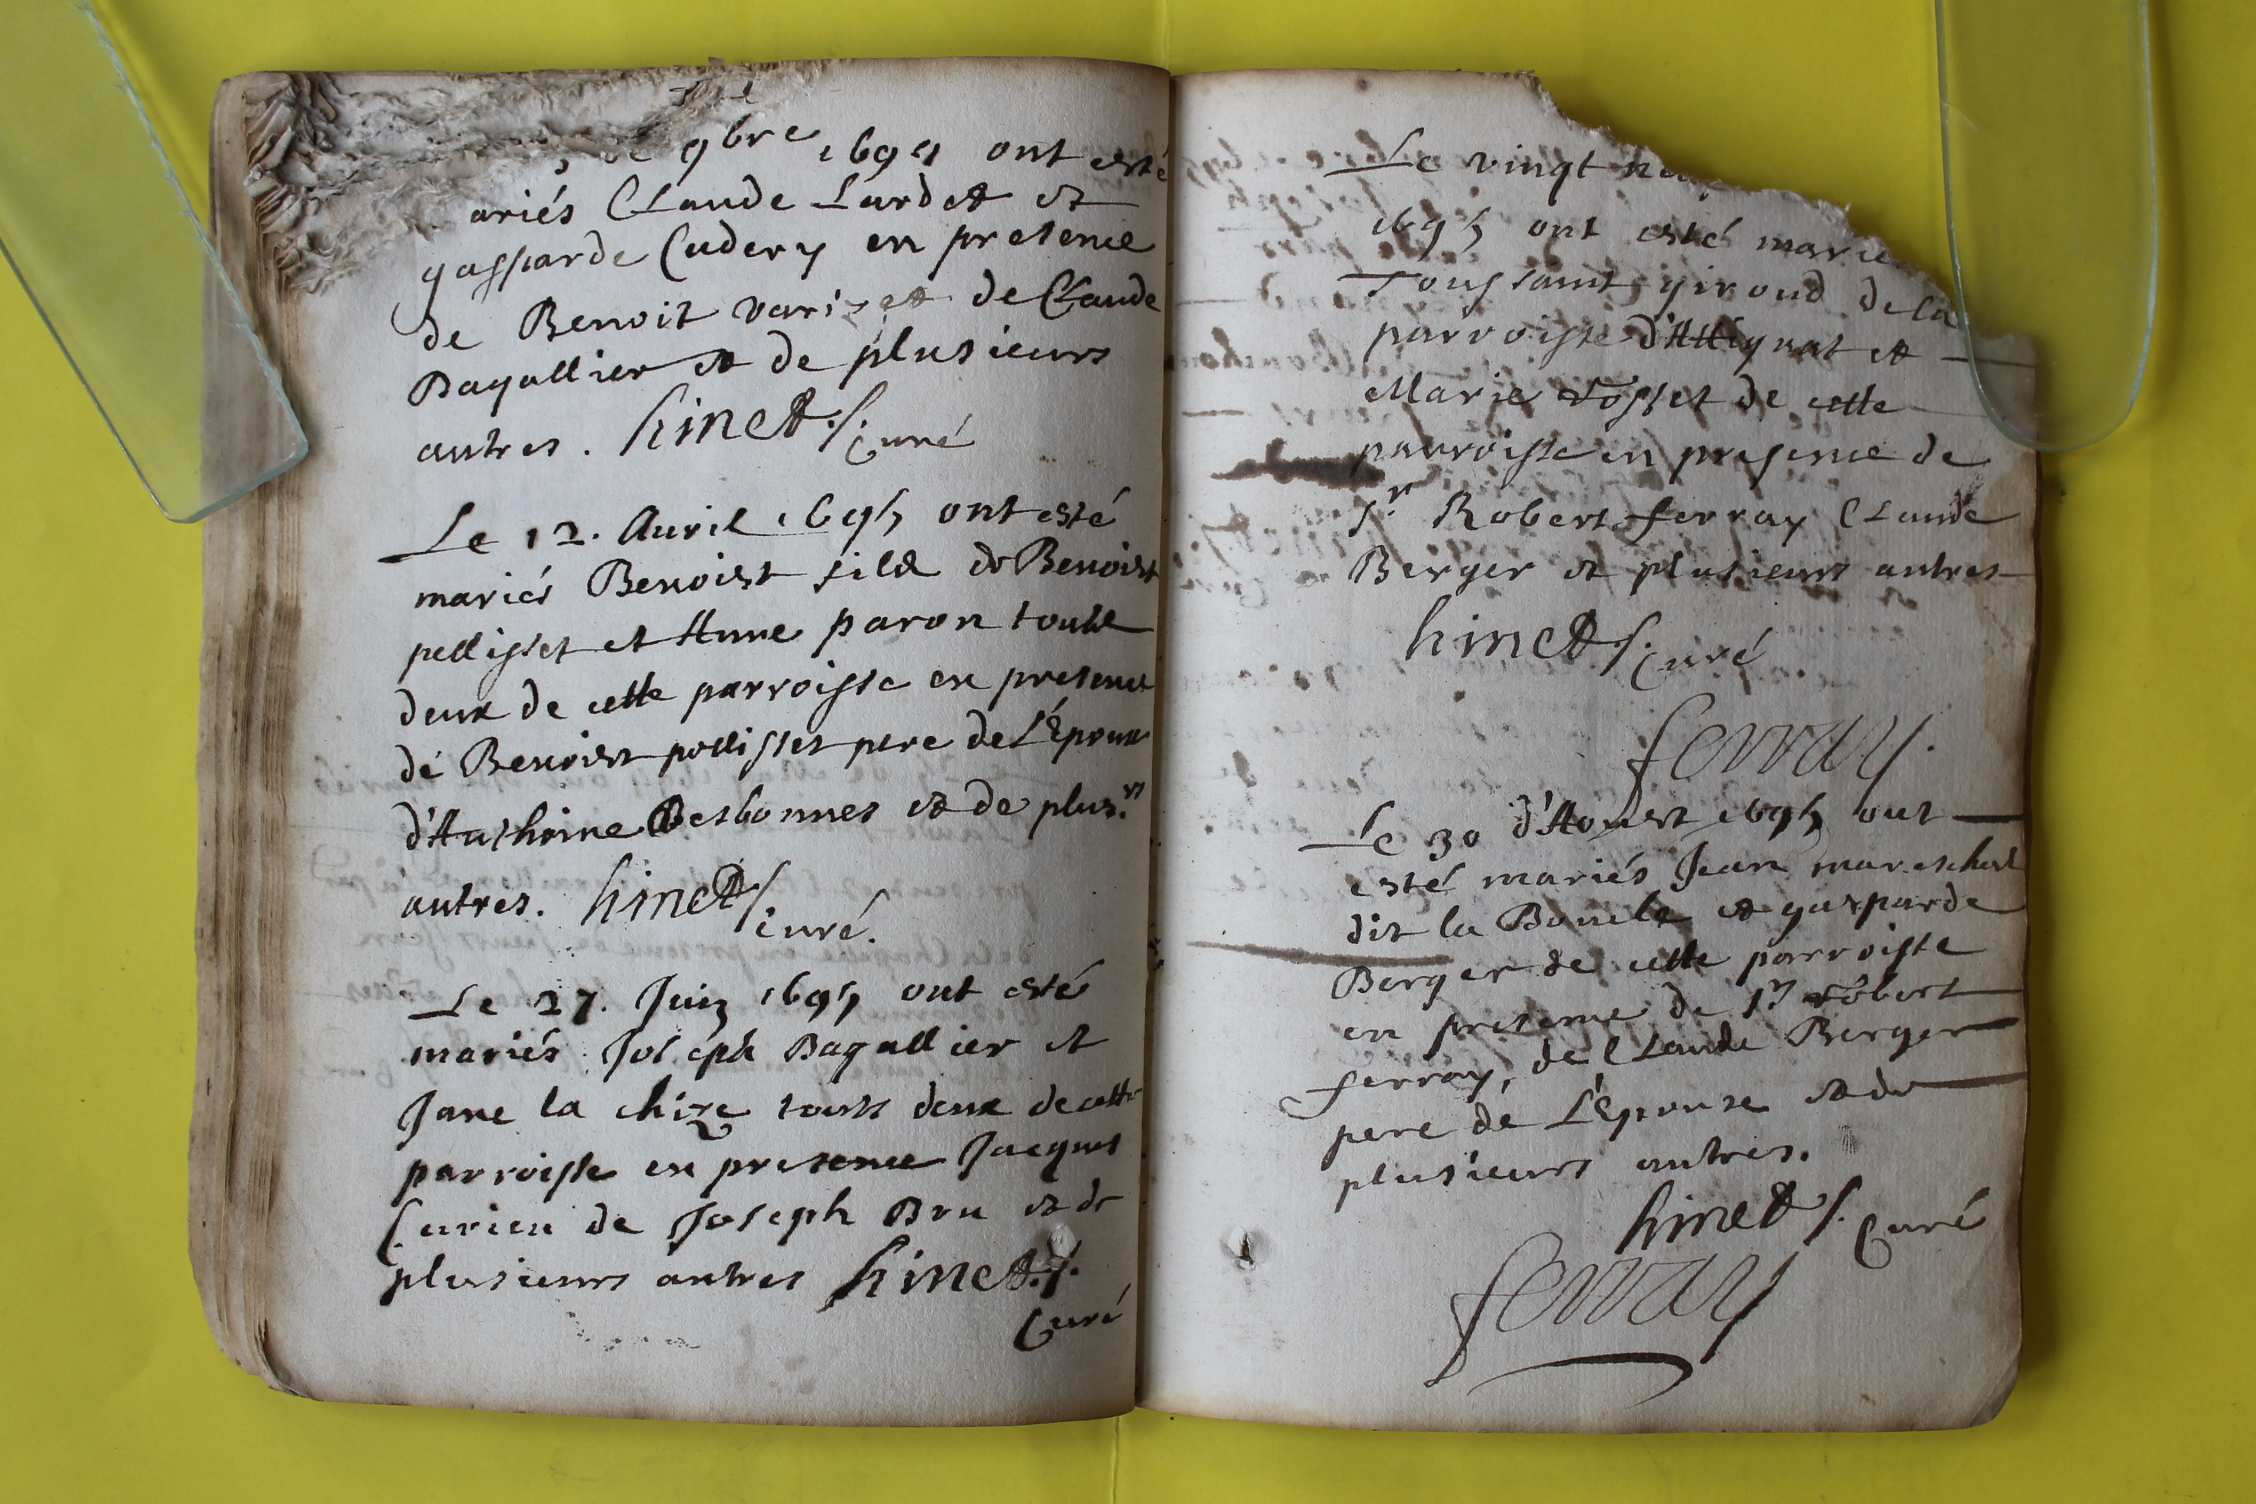 9bre 1694 ont esté
ariés Claude Lardet et
gasparde Cudery en presence
de Benoit variz et de Claude
Bagallier et de plusieurs
autres. hinet./. Curé
Le 12. Auril 1695 ont esté
mariés Benoist fils de Benoist
pellisset et Anne paron touts
deux de cette parroisse en presence
de Benoist pellisset pere de L'Epoux
d'Anthoine Desbonnes et de plus.rs
autres. hinet /. curé.
Le 27. Juin 1695 ont esté
mariés Joseph Bagallier et
Jane la chize touts deux de cette
parroisse en presence Jacques
Curieu de Joseph Bru et de
plusieurs autres hinet./.
Curé
Le vingt
1695 ont esté marie
Toussaint giroud de la
parroisse d'Attignat et
Marie rosset de cette
parroisse en presence de
sr Robert ferray Claude
Berger et plusieurs autres
hinet /. Curé
ferray.
Le 30 d'Aoust 1695 ont
esté mariés Jean mareschal
dit la Boucle et gasparde
Berger de cette parroisse
en presence de sr robert
ferray, de Claude Berger
pere de L'Epouse et de
plusieurs autres.
hinet /. Curé
ferray